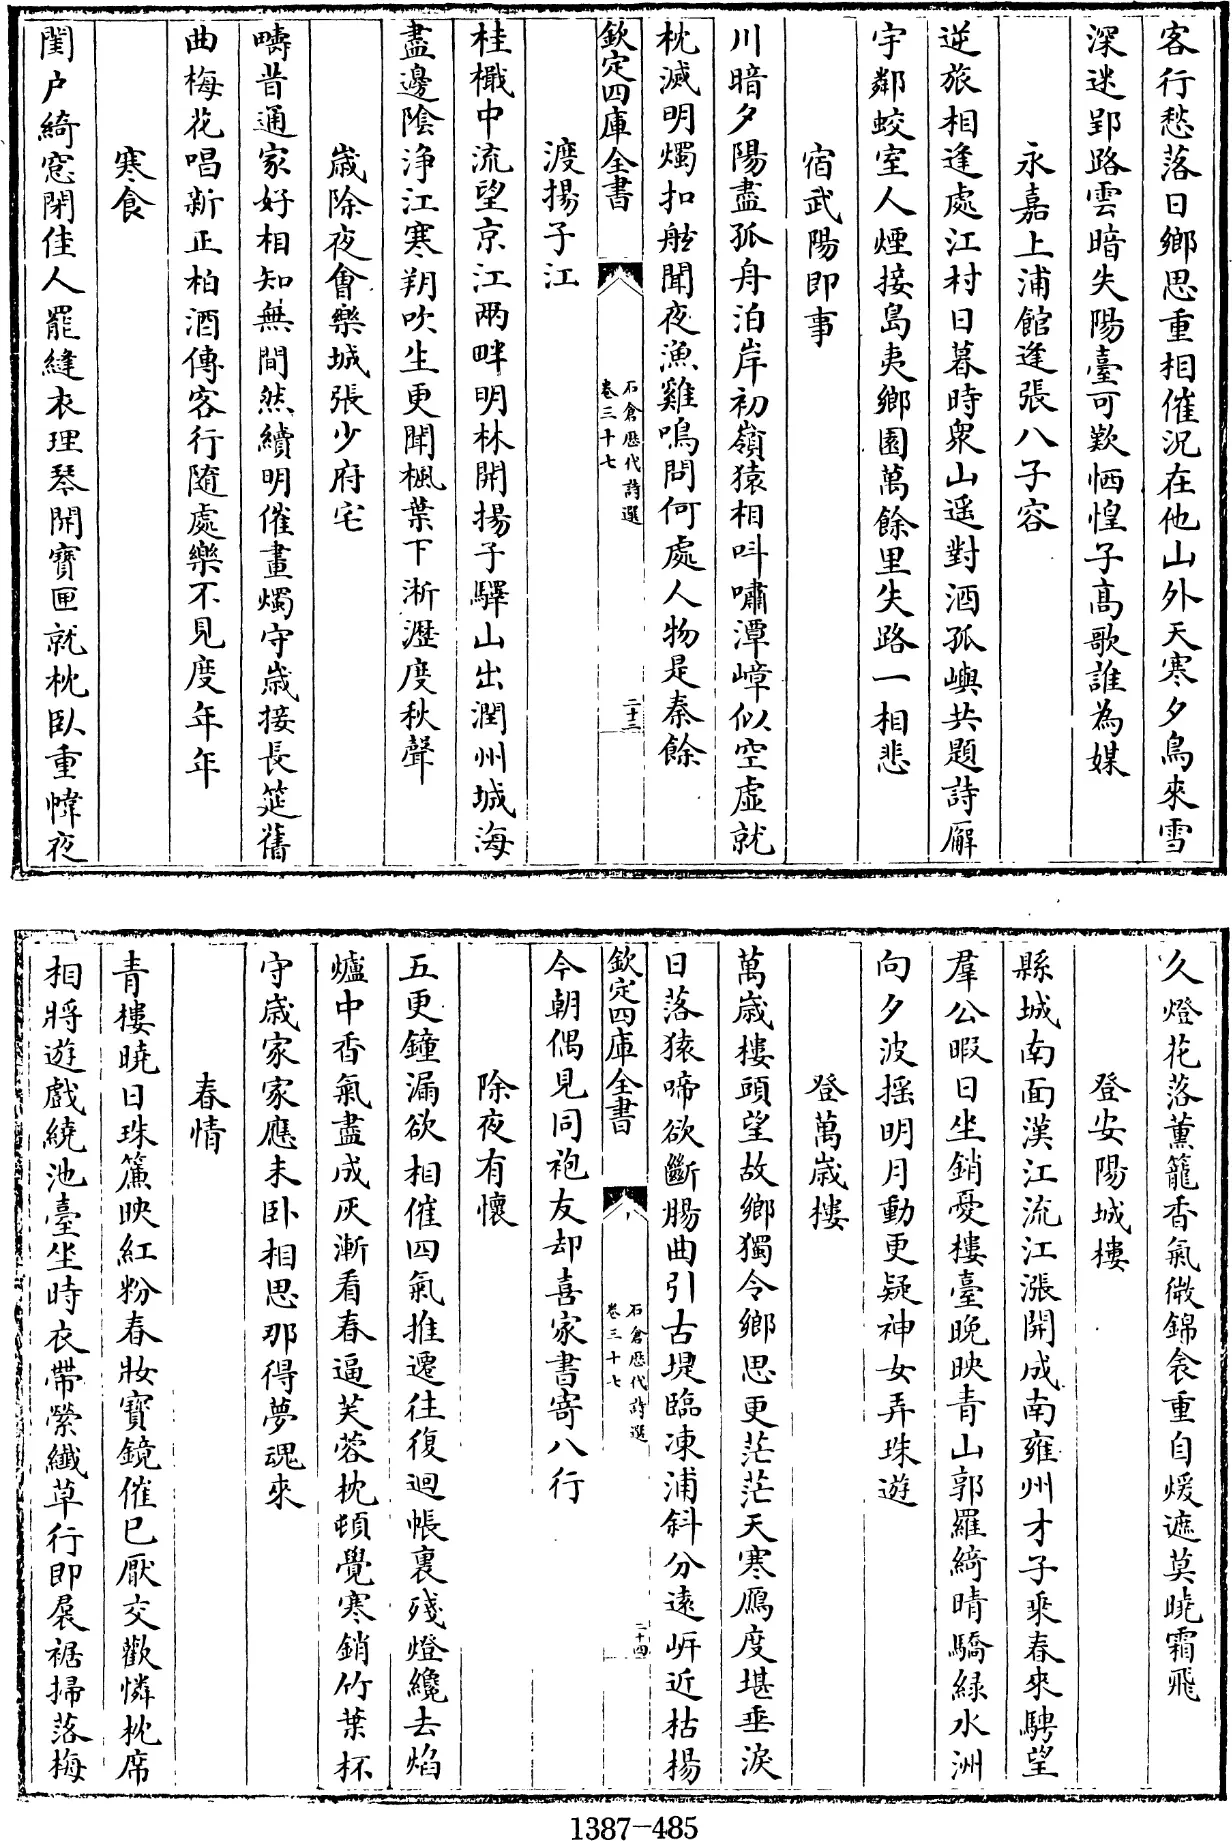 客行愁落日鄉思重相催況在他山外天寒夕鳥來雪
深迷郢路雲暗失陽臺可歎恓惶子髙歌誰為媒
永嘉上浦館逢張八子容
逆旅相逢處江村日暮時衆山遥對酒孤嶼共題詩廨
宇鄰蛟室人煙接島夷鄉園萬餘里失路一相悲
宿武陽即事
川暗夕陽盡孤舟泊岸初嶺猿相呌嘯潭嶂似空虛就
枕滅明燭扣舷聞夜漁雞鳴問何處人物是秦餘
欽定四庫全書
石倉歴代詩選
卷三十七
二十三
渡揚子江
桂檝中流望京江兩畔明林開揚子驛山出潤州城海
盡邊陰浄江寒朔吹生更聞楓葉下淅瀝度秋聲
歳除夜㑹樂城張少府宅
疇昔通家好相知無間然續明催畫燭守歳接長筵舊
曲梅花唱新正柏酒傳客行隨處樂不見度年年
寒食
閨户綺窓閉佳人罷縫衣理琴開寶匣就枕臥重幃夜
久燈花落薰籠香氣微錦衾重自煖遮莫曉霜飛
登安陽城樓
縣城南面漢江流江漲開成南雍州才子乘春來騁望
羣公暇日坐銷憂樓臺晚映青山郭羅綺晴驕緑水洲
向夕波揺明月動更疑神女弄珠遊
登萬歳樓
萬歳樓頭望故鄉獨令鄉思更茫茫天寒鴈度堪垂淚
日落猿啼欲斷腸曲引古堤臨凍浦斜分遠岍近枯楊
欽定四庫全書
石倉歴代詩選
卷三十七
二十四
今朝偶見同袍友却喜家書寄八行
除夜有懷
五更鐘漏欲相催四氣推遷往復迴帳裏殘燈纔去焰
爐中香氣盡成灰漸看春逼芙蓉枕頓覺寒銷竹葉杯
守歳家家應未卧相思那得夢魂來
春情
青樓曉日珠簾映紅粉春妝寶鏡催已厭交歡憐枕席
相將遊戲繞池臺坐時衣帶縈纖草行即裠裾掃落梅
1387-485